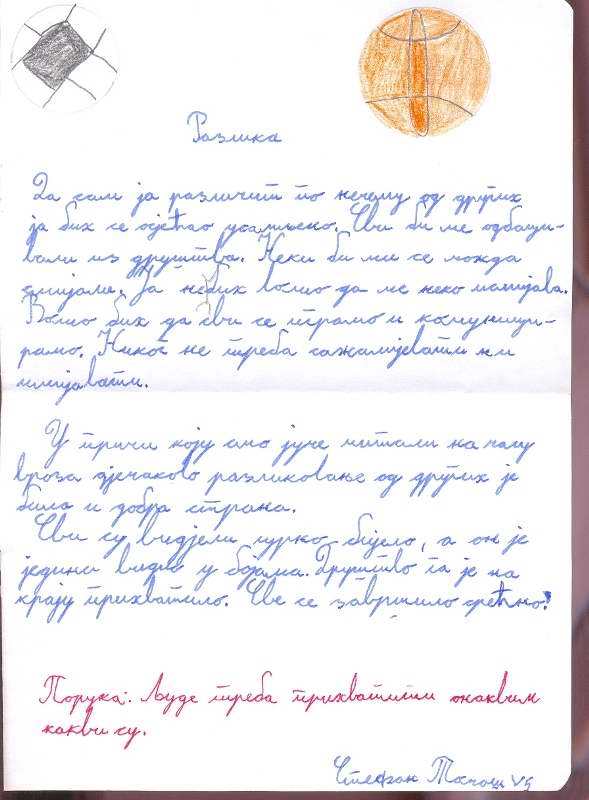 Разлика
Да сам ја различит по нечему од других
ја бих се осјећао усамљено. Сви би ме одбаци-
вали из друштва. Неки би ми се можда
смијали. Ја небих волио да ме неко исмијава.
Волио бих да сви се играмо и комуници-
рамо. Никог не треба сажаљевати ни
исмијавати.
У причи коју смо јуче читали на часу
кроза дјечаково разликовање од других је
била и добра страна.
Сви су видјели црно-бијело, а он је
једини видио у бојама. Друштво га је на
крају прихватило. Све се завршило срећно!
Порука: Људе треба прихватити онаквим
какви су.
Стефан V5